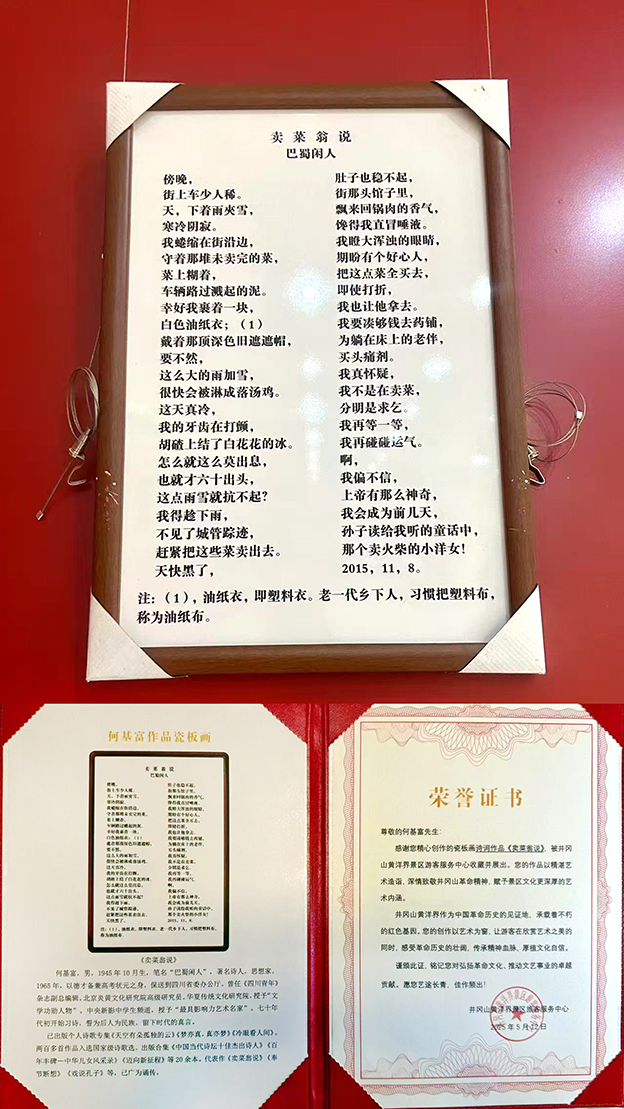 卖菜翁说
巴蜀闲人
傍晚，
街上车少人稀。
天，下着雨夹雪，
寒冷阴寂。
我蜷缩在街沿边，
守着那堆未卖完的菜，
菜上糊着，
车辆路过溅起的泥。
幸好我裹着一块，
白色油纸衣；（1）
戴着那顶深色旧遮遮帽，
要不然，
这么大的雨加雪，
很快会被淋成落汤鸡。
这天真冷，
我的牙齿在打颤，
胡碴上结了白花花的冰。
怎么就这么莫出息，
也就才六十出头，
这点雨雪就抗不起？
我得趁下雨，
不见了城管踪迹，
赶紧把这些菜卖出去。
天快黑了，
肚子也稳不起，
街那头馆子里，
飘来回锅肉的香气，
馋得我直冒唾液。
我瞪大浑浊的眼睛，
期盼有个好心人，
把这点菜全买去，
即使打折，
我也让他拿去。
我要凑够钱去药铺，
为躺在床上的老伴，
买头痛剂。
我真怀疑，
我不是在卖菜，
分明是求乞。
我再等一等，
我再碰碰运气。
啊，
我偏不信，
上帝有那么神奇，
我会成为前几天，
孙子读给我听的童话中，
那个卖火柴的小洋女！
2015，11，8。
注：（1），油纸衣，即塑料衣。老一代乡下人，习惯把塑料布，
称为油纸布。
何基富作品瓷板画
卖菜翁说
巴蜀闲人
《卖菜翁说》
何基富，男，1945年10月生，笔名“巴蜀闲人”，著名诗人，思想家，
1965年，以德才备兼高考状元之身，保送到四川省委办公厅。曾任《四川青年》
杂志副总编辑，北京炎黄文化研究院高级研究员，华夏传统文化研究院，授予“文
学功勋人物”。中央新影中学生频道，授予“最具影响力艺术家”。七十年
代初开始习诗，誓为后人为民族，留下时代的真言。
已出版个人诗歌专集《天空有朵孤独的云》《梦亦真，真亦梦》《冷眼看人间》，
两百多首作品入选国家级诗歌选。出版合集《中国当代诗坛十佳杰出诗人》《百
年丰碑一中华儿女风采录》《迈向新征程》等20余本。代表作《卖菜翁说》《奉
节断想》《戏说孔子》等，已广为诵传。
荣誉证书
尊敬的何基富先生：
感谢您精心创作的瓷板画诗词作品《卖菜翁说》，被井冈
山黄洋界景区游客服务中心收藏并展出。您的作品以精湛艺
术造诣，深情致敬井冈山革命精神，赋予景区文化更深厚的艺
术内涵。
井冈山黄洋界作为中国革命历史的见证地，承载着不朽
的红色基因。您的创作以艺术为窗，让游客在欣赏艺术之美的
同时，感受革命历史的壮阔，传承精神血脉，厚植文化自信。
谨颁此证，铭记您对弘扬革命文化、推动文艺事业的卓越
贡献。愿您艺途长青、佳作频出！
井冈山黄洋界景区游客服务中心
2025年5月12日